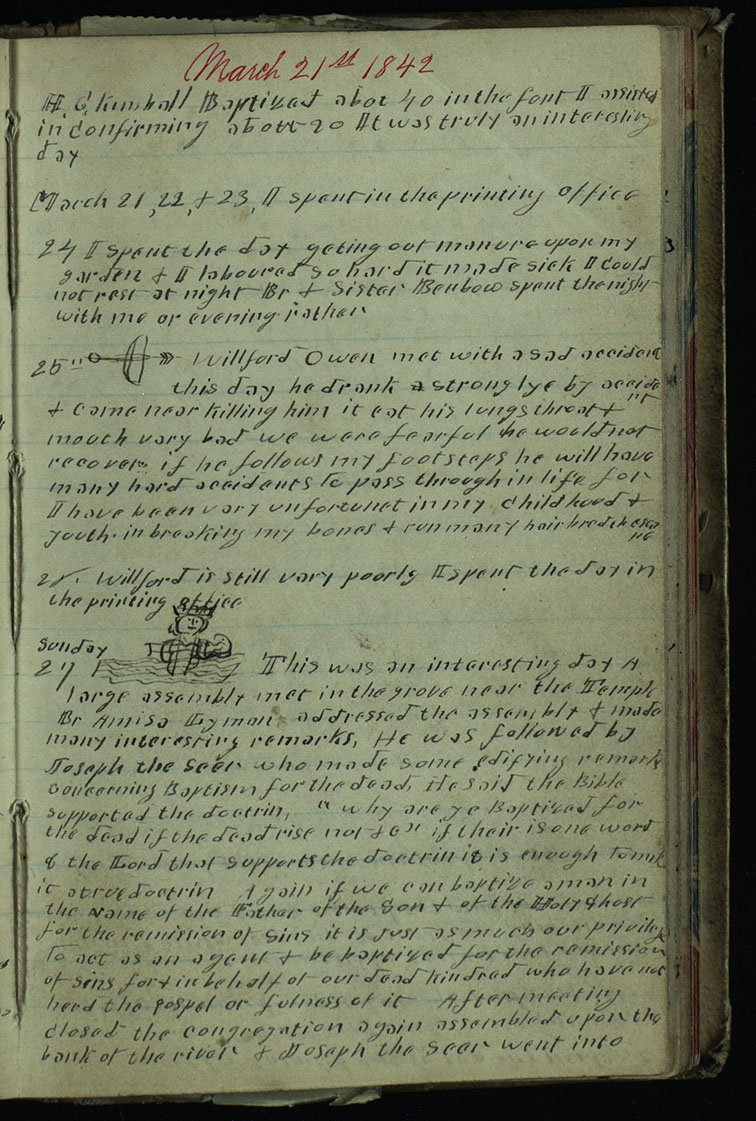 March 21st 1842
H. C, Kimball Baptized abot 40 in the font I assisted
in Confirming about 20 It was truly an interesting
day
March 21, 22, & 23, I spent in the printing office
24 I spent the day geting out manure upon my
garden & I laboured so hard it made sick I could
not rest at night Br & Sister Benbow spent the night
with me or evening rather
25" Willford Owen met with a sad accident
this day he drank a strong lye by accide
"t
& came near killing him it eat his lungs throat &
mouth vary bad we were fearful he would not
recover. if he follows my footsteps he will have
many hard accidents to pass through in life for
I have been vary unfortunet in my childhood &
youth. in breaking my bones & run many hair bredth esca
"pe
Willford is still vary poorly I spent the day in
the printing office
Sunday
27 This was an interesting day A
large assembly met in the grove near the Temple
Br Amisa Lyman addressed the assembly & made
many interesting remarks, He was followed by
Joseph the Seer who made some edifying remarks
concerning Baptism for the dead, He said the Bible
supported the doctrin, "why are ye Baptized for
the dead if the dead rise not &c" if their is one word
of the Lord that supports the doctrin it is enough to make
it a true doctrin Again if we can baptize a man in
the name of the Father of the Son & of the Holy Ghost
for the remission of Sins it is just as much our privilege
to act as an agent & be baptized for the remission
of sins for & in behalf of our dead kindred who have not
herd the gospel or fulness of it After meeting
closed the congregation again assembled upon the
bank of the river & Joseph the Seer went into